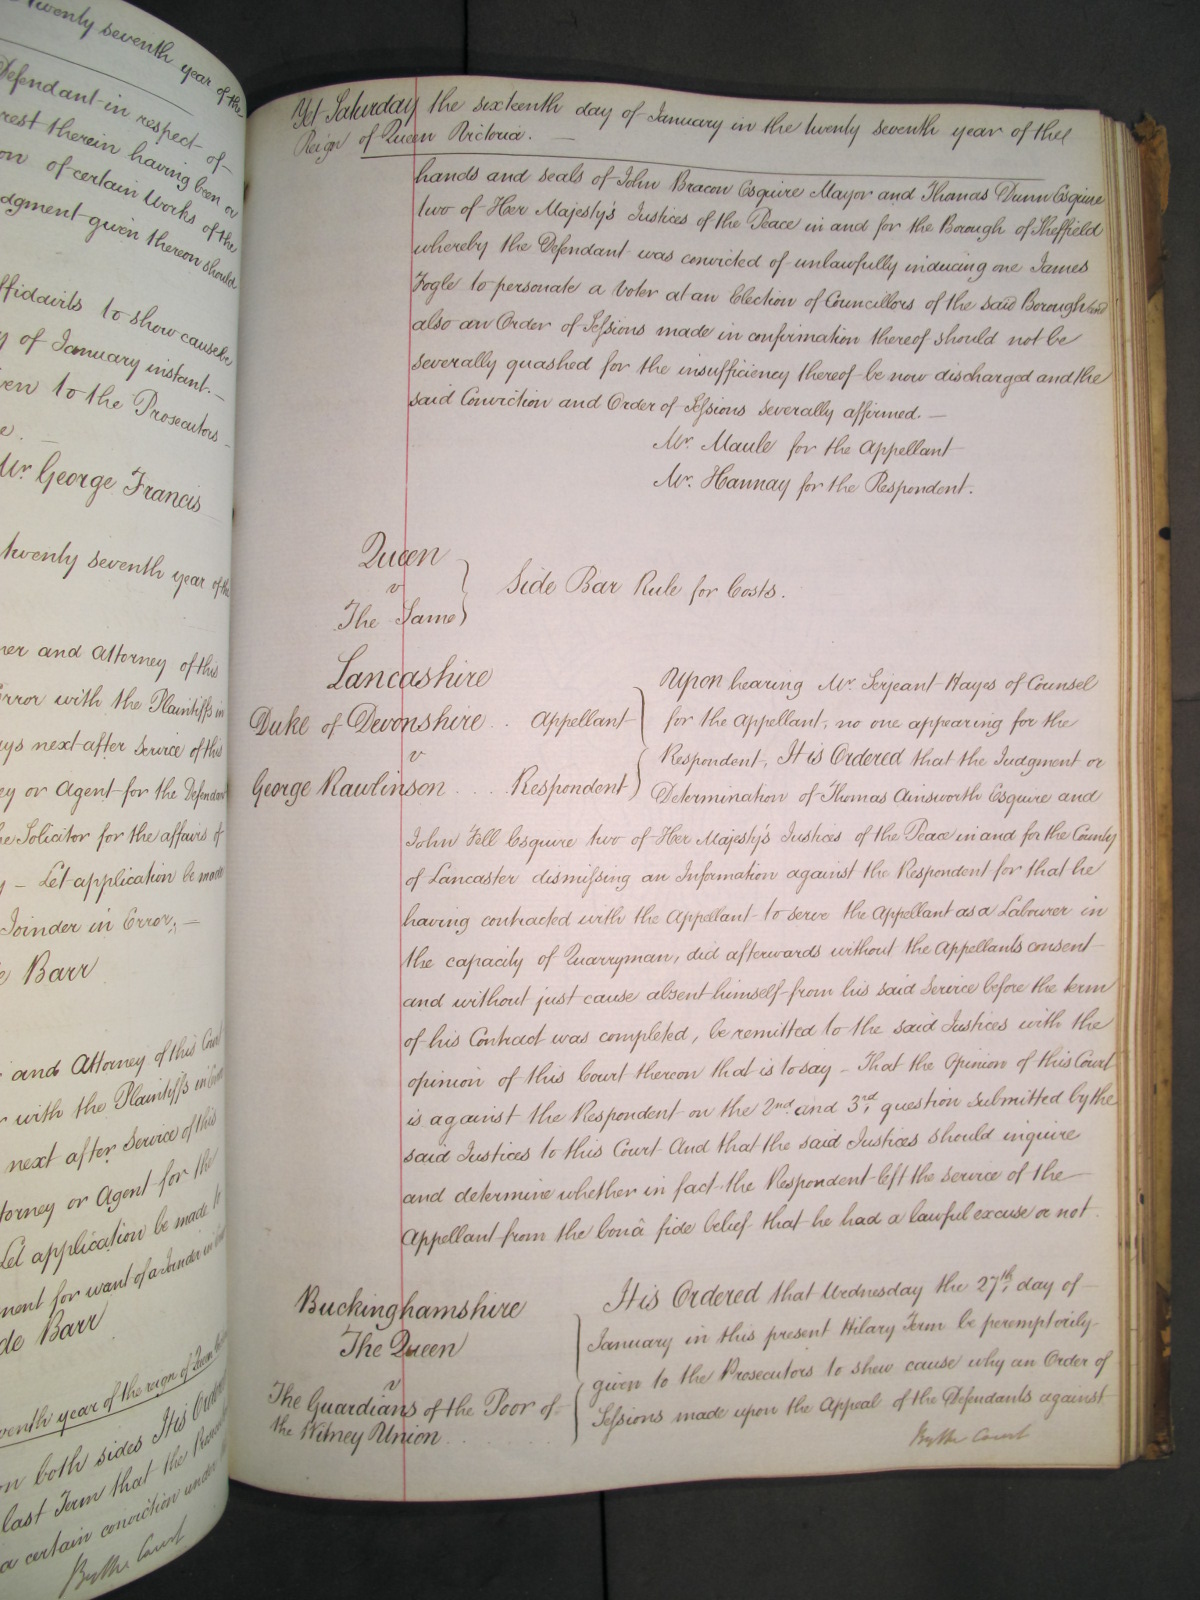 twenty seventh year of the
Defendant in respect of
rest therein having been or
on of certain Works of the
dgment given thereon should
ffidavits to show cause be
y of January instant. —
ven to the Prosecutors —
e. —
Mr. George Francis
twenty seventh year of the
ner and Attorney of this
Error with the Plaintiffs in
ays next after Service of this
ey or Agent for the Defendant
he Solicitor for the affairs of
y — Let application be made
Joinder in Error, —
e Barr
and Attorney of this Court
r with the Plaintiffs in Error
next after Service of this
torney or Agent for the
Let application be made to
ment for want of a Joinder in
de Barr
venth year of the reign of Queen
on both sides It is Ordered
last Term that the Prosecutors
a certain conviction under
By the Court
Yet Saturday the sixteenth day of January in the twenty seventh year of the
Reign of Queen Victoria. —
hands and seals of John Bracon Esquire Mayor and Thomas Dunn Esquire
two of Her Majesty's Justices of the Peace in and for the Borough of Sheffield
whereby the Defendant was convicted of unlawfully inducing one James
Fogle to personate a Voter at an Election of Councillors of the said Borough and
also an Order of Sessions made in confirmation thereof should not be
severally quashed for the insufficiency thereof be now discharged and the
said Conviction and Order of Sessions severally affirmed. —
Mr. Maule for the Appellant
Mr. Hannay for the Respondent.
Queen
v
The Same
Side Bar Rule for Costs.
Lancashire
Duke of Devonshire .. Appellant
v
George Rawlinson .... Respondent
Upon hearing Mr. Serjeant Hayes of Counsel
for the Appellant, no one appearing for the
Respondent, It is Ordered that the Judgment or
Determination of Thomas Ainsworth Esquire and
John Fell Esquire two of Her Majesty's Justices of the Peace in and for the County
of Lancaster dismissing an Information against the Respondent for that he
having contracted with the Appellant to serve the Appellant as a Labourer in
the capacity of Quarryman, did afterwards without the Appellants consent
and without just cause absent himself from his said Service before the term
of his Contract was completed, be remitted to the said Justices with the
opinion of this Court thereon that is to say – That the Opinion of this Court
is against the Respondent on the 2nd. and 3rd. question submitted by the
said Justices to this Court And that the said Justices should inquire
and determine whether in fact the Respondent left the service of the
Appellant from the bonâ fide belief that he had a lawful excuse or not.
Buckinghamshire
The Queen
v
The Guardians of the Poor of
the Witney Union ....
It is Ordered that Wednesday the 27th. day of
January in this present Hilary Term be peremptorily
given to the Prosecutors to shew cause why an Order of
Sessions made upon the Appeal of the Defendants against
By the Court